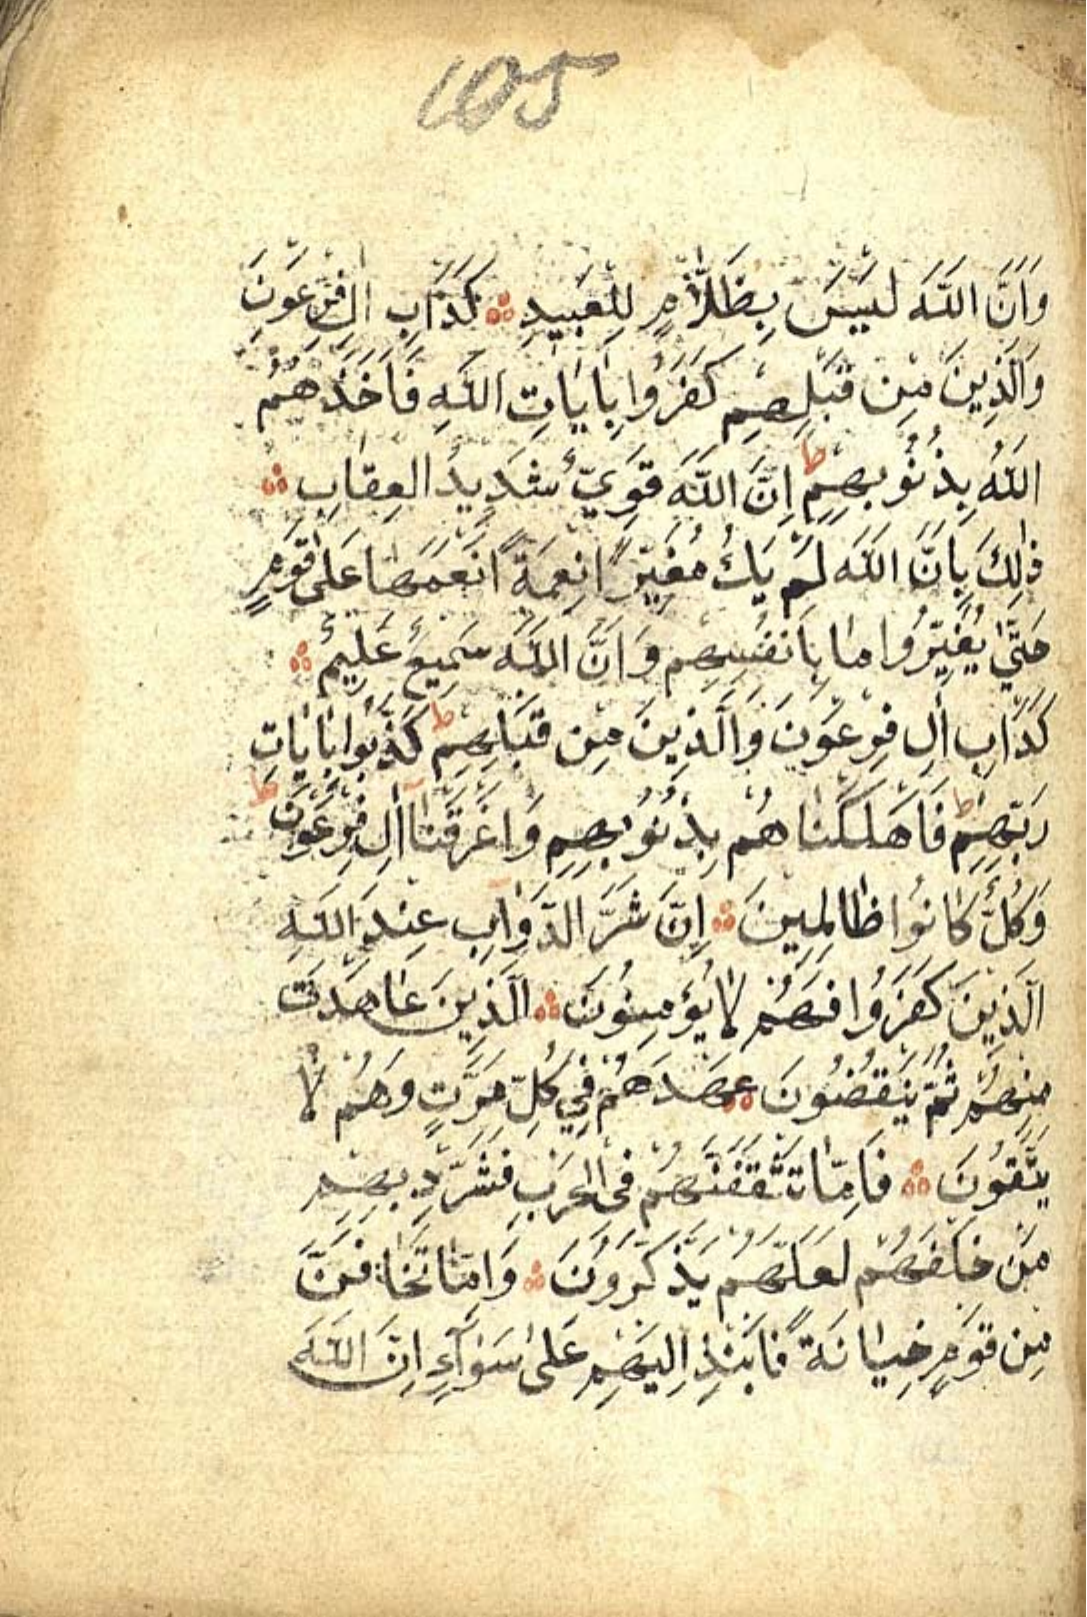 105
وَاَنَّ اللّٰهَ لَيْسَ بِظَلَّامٍ لِلْعَبِيدِ ۞ كَدَاْبِ اٰلِ فِرْعَوْنَ
وَالَّذِينَ مِنْ قَبْلِهِمْ كَفَرُوا بِاٰيَاتِ اللّٰهِ فَاَخَذَهُمُ
اللّٰهُ بِذُنُوبِهِمْ ط اِنَّ اللّٰهَ قَوِيٌّ شَدِيدُ الْعِقَابِ ۞
ذٰلِكَ بِاَنَّ اللّٰهَ لَمْ يَكُ مُغَيِّرًا نِعْمَةً اَنْعَمَهَا عَلٰى قَوْمٍ
حَتّٰى يُغَيِّرُوا مَا بِاَنْفُسِهِمْ وَاَنَّ اللّٰهَ سَمِيعٌ عَلِيمٌ ۞
كَدَاْبِ اٰلِ فِرْعَوْنَ وَالَّذِينَ مِنْ قَبْلِهِمْ ط كَذَّبُوا بِاٰيَاتِ
رَبِّهِمْ ط فَاَهْلَكْنَاهُمْ بِذُنُوبِهِمْ وَاَغْرَقْنَا اٰلَ فِرْعَوْنَ ط
وَكُلٌّ كَانُوا ظَالِمِينَ ۞ اِنَّ شَرَّ الدَّوَابِّ عِنْدَ اللّٰهِ
الَّذِينَ كَفَرُوا فَهُمْ لَا يُؤْمِنُونَ ۞ الَّذِينَ عَاهَدْتَ
مِنْهُمْ ثُمَّ يَنْقُضُونَ عَهْدَهُمْ فِي كُلِّ مَرَّتٍ وَهُمْ لَا
يَتَّقُونَ ۞ فَاِمَّا تَثْقَفَنَّهُمْ فِي الْحَرْبِ فَشَرِّدْ بِهِمْ
مَنْ خَلْفَهُمْ لَعَلَّهُمْ يَذَّكَّرُونَ ۞ وَاِمَّا تَخَافَنَّ
مِنْ قَوْمٍ خِيَانَةً فَانْبِذْ اِلَيْهِمْ عَلٰى سَوَاءٍ اِنَّ اللّٰهَ